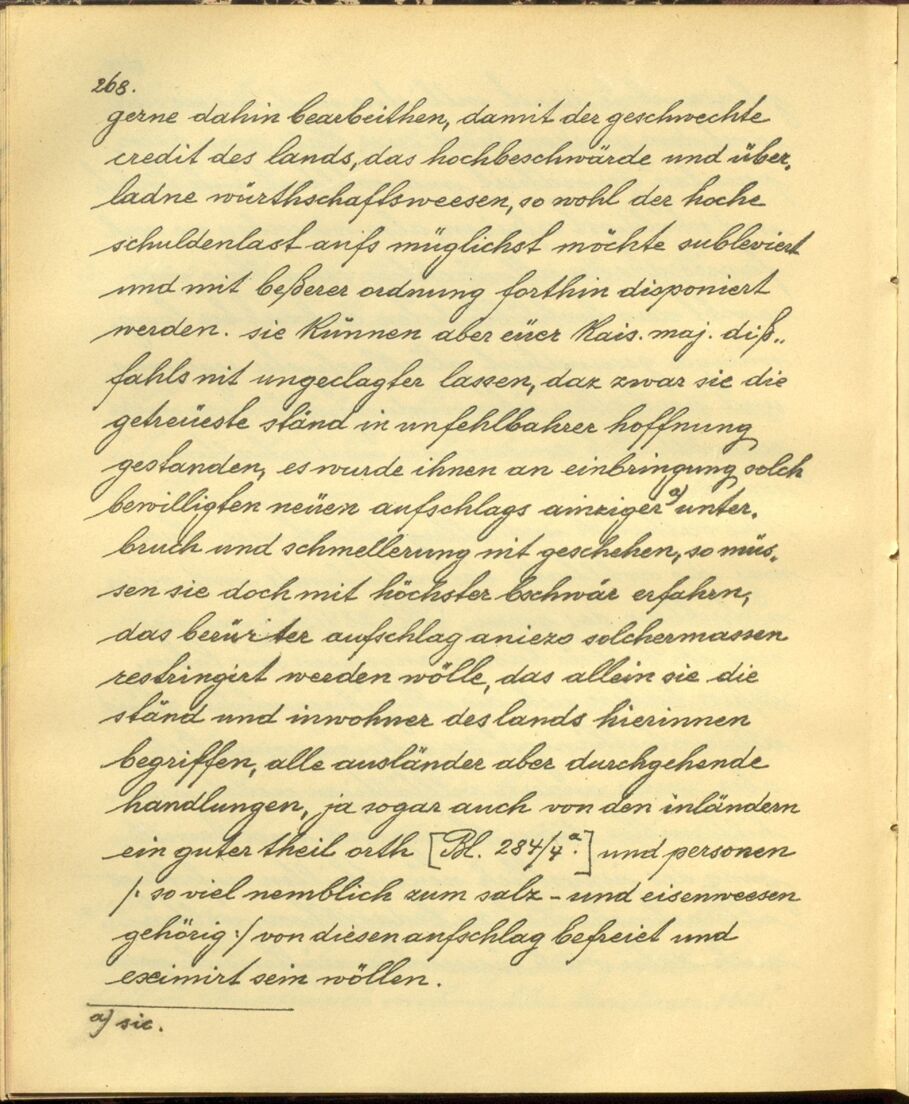 268.
gerne dahin bearbeithen, damit der geschwechte
credit des lands, das hochbeschwärde und über„
ladne würthschaftsweesen, so wohl der hoche
schuldenlast aufs müglichst möchte subleviert
und mit beßerer ordnung forthin disponiert
werden. sie künnen aber eüer kais. maj. diß„
fahls nit ungeclagter lassen, daz zwar sie die
getreüeste ständ in unfehlbahrer hoffnung
gestanden, es wurde ihnen an einbringung solch
bewilligten neüen aufschlags ainziger a) unter„
bruch und schmellerung nit geschehen, so müs„
sen sie doch mit höchster bschwär erfahrn,
das berürter aufschlag aniezo solchermassen
restringirt werden wölle, das allein sie die
ständ und inwohner des lands hierinnen
begriffen, alle ausländer aber durchgehende
handlungen, ja sogar auch von den inländern
ein guter theil orth [Bl. 284/4a.] und personen
/: so viel nemblich zum salz- und eisenweesen
gehörig :/ von diesen aufschlag befreiet und
eximirt sein wöllen.
a) sic.